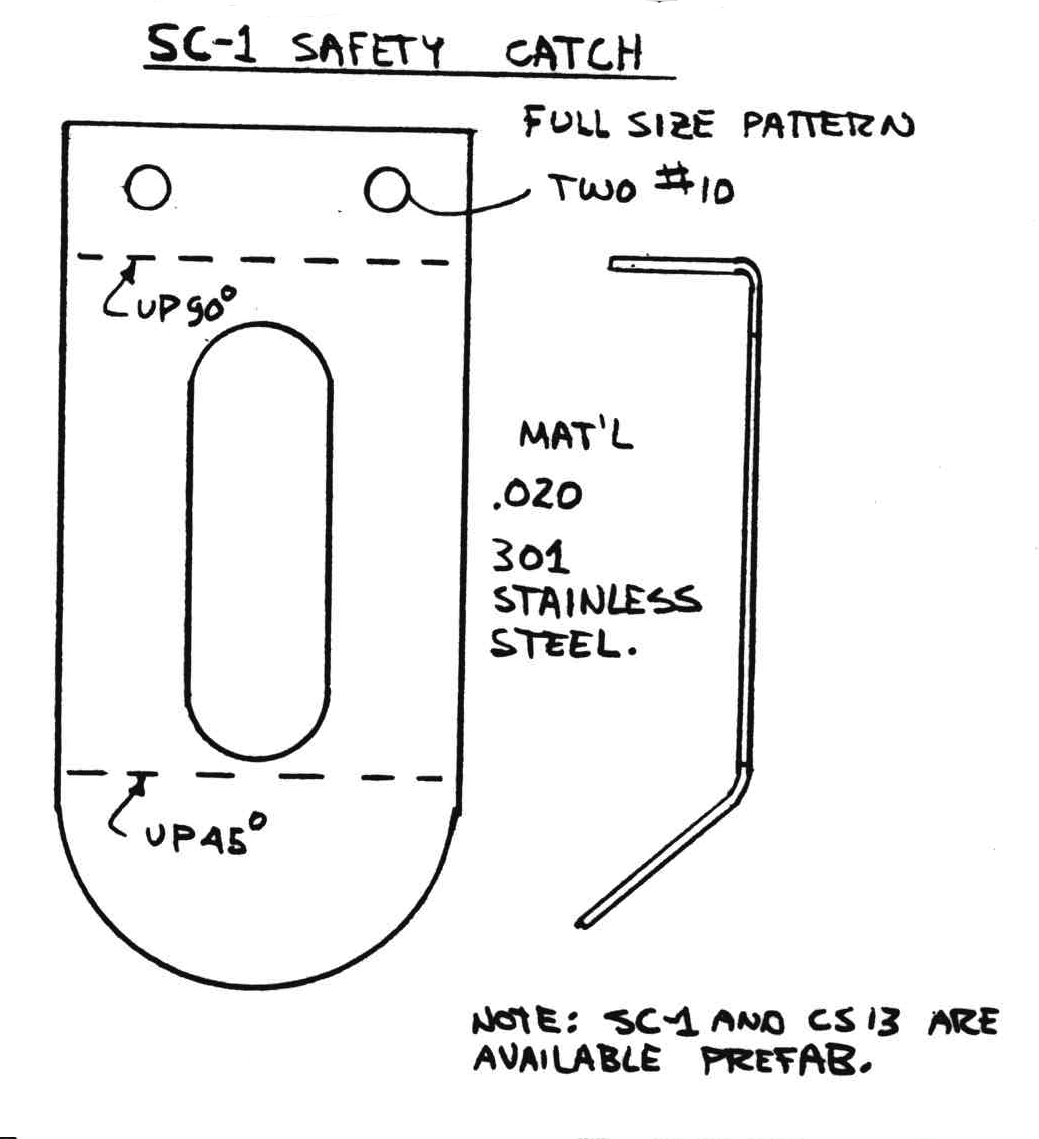 SC-1 SAFETY CATCH
FULL SIZE PATTERN
TWO #10
UP 90°
MAT'L
.020
301
STAINLESS
STEEL.
UP 45°
NOTE: SC-1 AND CS 13 ARE
AVAILABLE PREFAB.